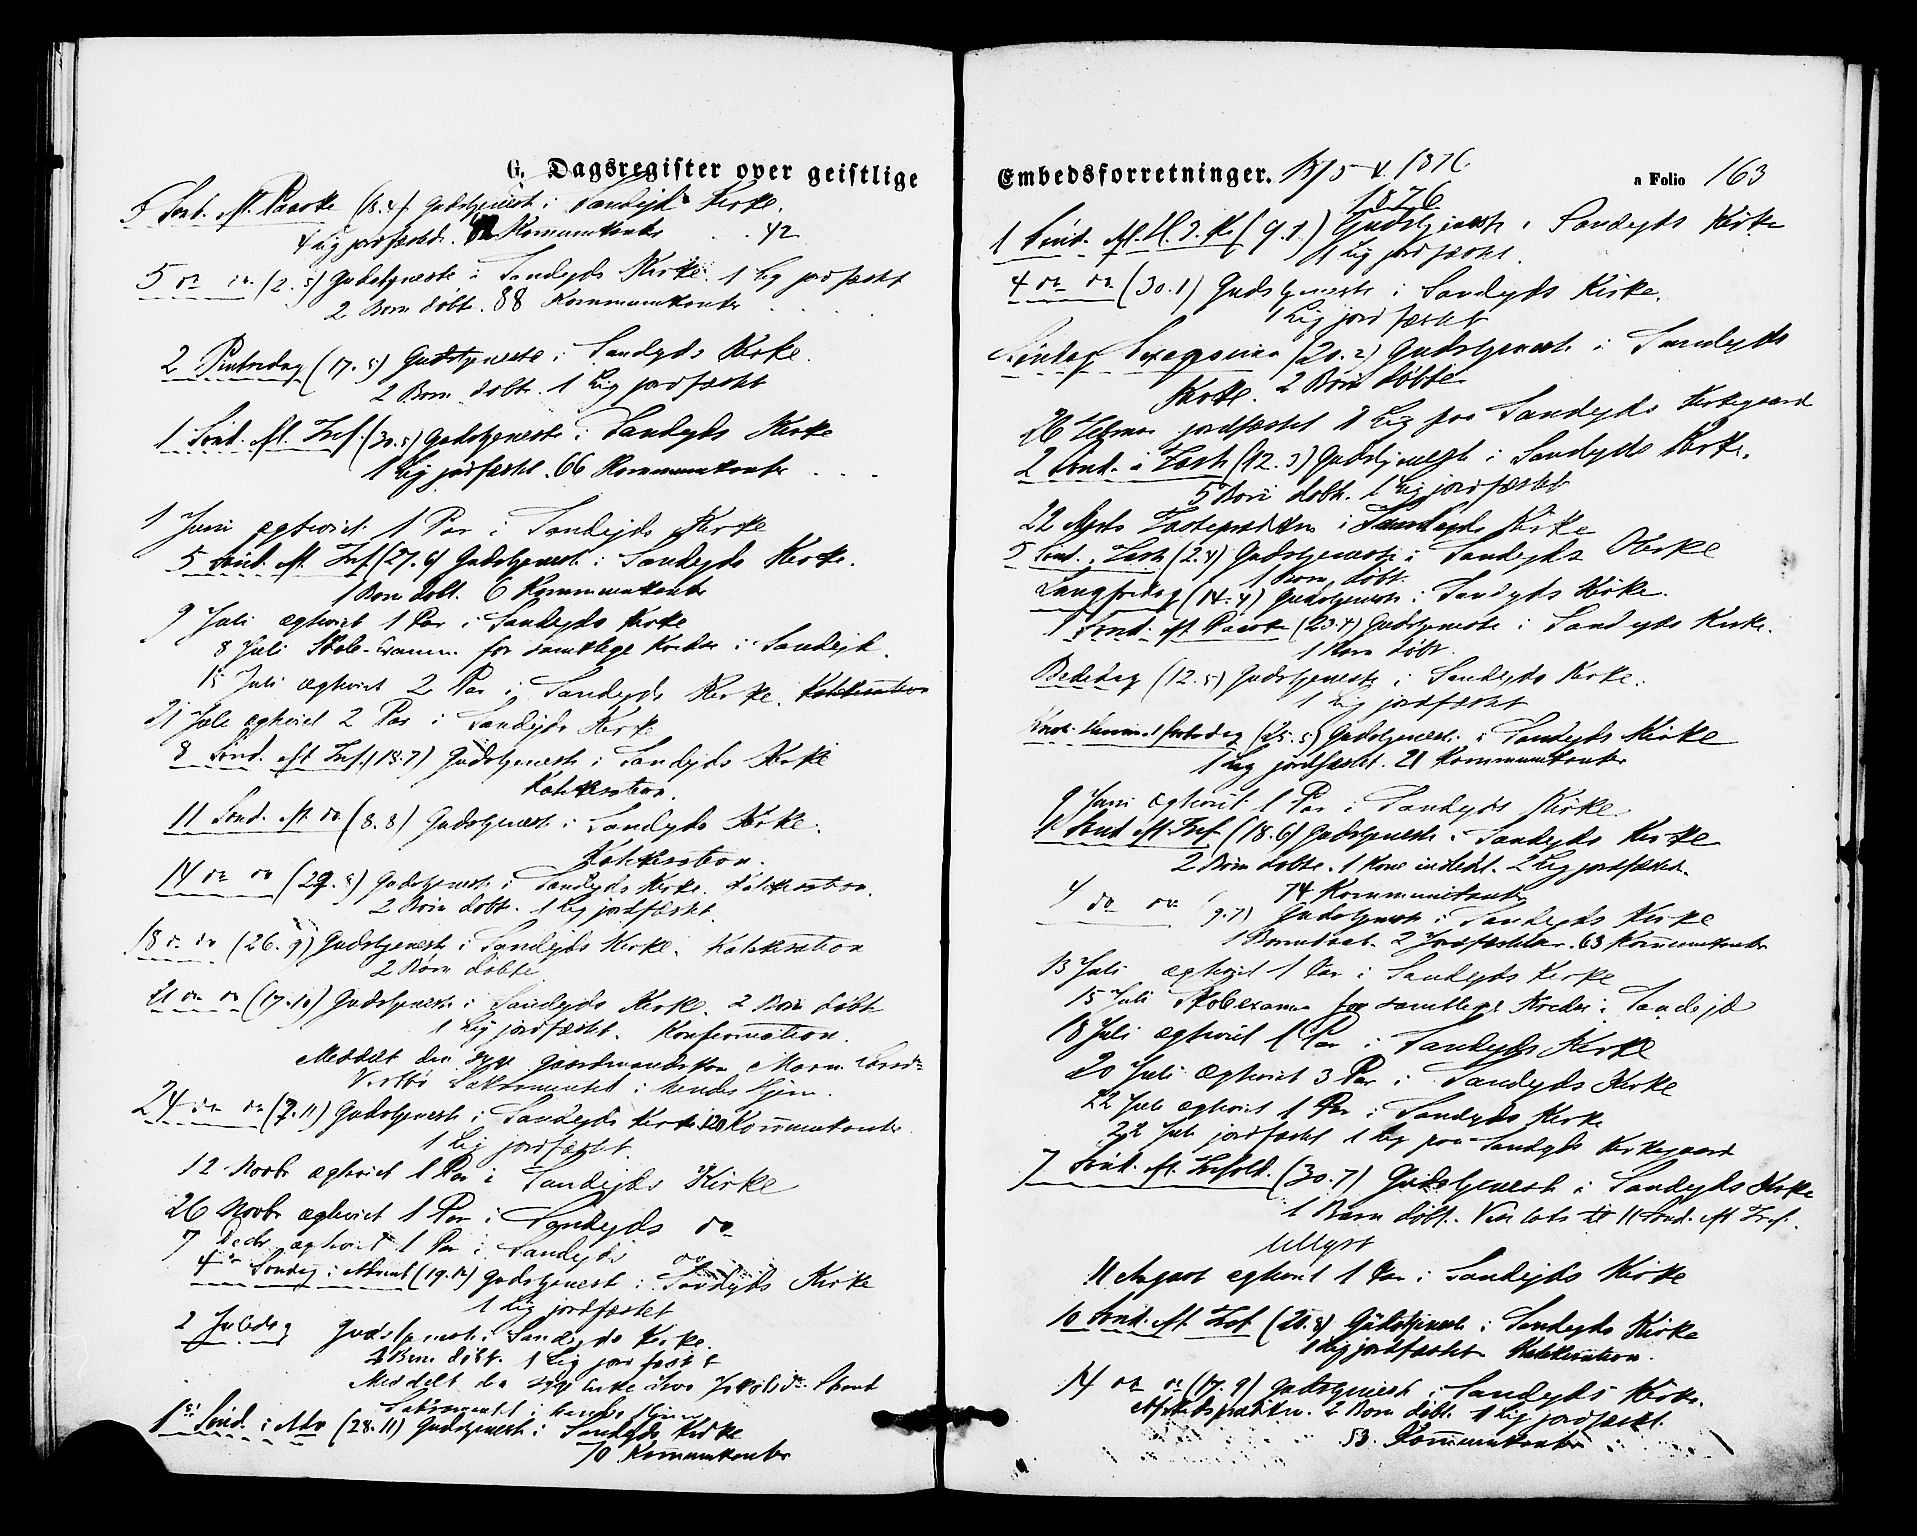 G. Dagsregister over geistlige
Sønd. eft. Paaske (18.4). Gudstjeneste i Sandeids Kirke.
4 Lig jordfæstede. Kommunikanter 42
5 do do (2.5) Gudstjeneste i Sandeyds Kirke. 1 Lig jordfæstet
2 Børn døbte. 88 Kommunikanter
2 Pintsedag (17.5) Gudstjeneste i Sandeyds Kirke.
2 Børn døbte. 1 Lig jordfæstet
1 Sønd. eft. Tref. (30.5) Gudstjeneste i Sandeyds Kirke
1 Lig jordfæstet. 66 Kommunikanter
1 Juni ægteviet 1 Par i Sandeyds Kirke
5 Sønd. eft. Tref. (27.6) Gudstjeneste i Sandeyds Kirke.
1 Barn døbt. 6 Kommunikanter
9 Juli ægteviet 1 Par i Sandeyds Kirke
8 Juli Skole-Examen for samtlige Kredse i Sandeid.
15 Juli ægteviet 2 Par i Sandeyds Kirke. Katekisation
21 Juli ægteviet 2 Par i Sandeyds Kirke
8 Sønd. eft. Tref. (18.7) Gudstjeneste i Sandeyds Kirke
Katekisation.
11 Sønd. eft. do (8.8) Gudstjeneste i Sandeyds Kirke.
Katekisation.
14 do do (29.8) Gudstjeneste i Sandeyds Kirke. Katekisation.
2 Børn døbt. 1 Lig jordfæstet.
18 do do (26.9) Gudstjeneste i Sandeyds Kirke. Katekisation
2 Børn døbte
21 do do (17.10) Gudstjeneste i Sandeyds Kirke. 2 Børn døbt
1 Lig jordfæstet. Konfirmation.
Meddelt den syge Gaardmandskone
Sakramentet i hendes Hjem.
24 do do (7.11) Gudstjeneste i Sandeyds Kirke 120 Kommunikanter.
1 Lig jordfæstet.
12 Novbr ægteviet 1 Par i Sandeyds Kirke
26 Novbr ægteviet 1 Par i Sandeyds do
7 Decbr ægteviet 1 Par i Sandeyds do
4de Søndag i Advent (19.12) Gudstjeneste i Sandeyds Kirke
1 Lig jordfæstet
2 Juledag Gudstjeneste i Sandeyds Kirke.
Børn døbt. 1 Lig jordfæstet
Meddelt den syge Enke
Sakramentet i hendes Hjem
1ste Sønd. i Adv (28.11) Gudstjeneste i Sandeyds Kirke
70 Kommunikanter
Embedsforretninger. 1876. a Folio 163
1876
1 Sønd. eft. H. 3. K. (9.1) Gudstjeneste i Sandeyds Kirke
1 Lig jordfæstet.
4 do do (30.1) Gudstjeneste i Sandeyds Kirke.
1 Lig jordfæstet
Søndag Sexagesima (20.2) Gudstjeneste i Sandeyds
Kirke. 2 Børn døbte
26 Februar jordfæstet 1 Lig paa Sandeyds Kirkegaard
2 Sønd. i Faste (12.3) Gudstjeneste i Sandeyds Kirke.
5 Børn døbte. 1 Lig jordfæstet
22 Marts Fastepræken i Sandeyds Kirke
5 Sønd. i Faste (2.4) Gudstjeneste i Sandeyds Kirke
1 Barn døbt.
Langfredag (14.4) Gudstjeneste i Sandeyds Kirke.
1 Sønd. eft. Paaske (23.4) Gudstjeneste i Sandeyds Kirke.
1 Barn døbt.
Bededag (12.5) Gudstjeneste i Sandeyds Kirke.
1 Lig jordfæstet
Kristi Himmelfartsdag (25.5) Gudstjeneste i Sandeyds Kirke
1 Lig jordfæstet. 21 Kommunikanter
9 Juni ægteviet 1 Par i Sandeyds Kirke
1 Sønd. eft. Tref. (18.6) Gudstjeneste i Sandeyds Kirke
2 Børn døbte. 1 Kone indledt. 2 Lig jordfæstet.
74 Kommunikanter
4 do do (9.7) Gudstjeneste i Sandeyds Kirke
1 Barnedaab. 2 Jordfæstelser. 63 Kommunikanter
13 Juli ægteviet 1 Par i Sandeyds Kirke
15 Juli Skolexamen for samtlige Kredse i Sandeid
18 Juli ægteviet 1 Par i Sandeyds Kirke
20 Juli ægteviet 3 Par i Sandeyds Kirke
22 Juli ægteviet 1 Par i Sandeyds Kirke
22 Juli jordfæstet 1 Lig paa Sandeyds Kirkegaard
7 Sønd. eft. Trefold. (30.7) Gudstjeneste i Sandeyds Kirke
1 Barn døbt. til 11 Sønd. eft. Tref.
11 August ægteviet 1 Par i Sandeyds Kirke
10 Sønd. eft. Tref. (20.8) Gudstjeneste i Sandeyds Kirke
1 Lig jordfæstet. Katekisation.
14 do do (17.9) Gudstjeneste i Sandeyds Kirke.
Afskedspræken. 2 Børn døbt. 1 Lig jordfæstet.
53. Kommunikanter